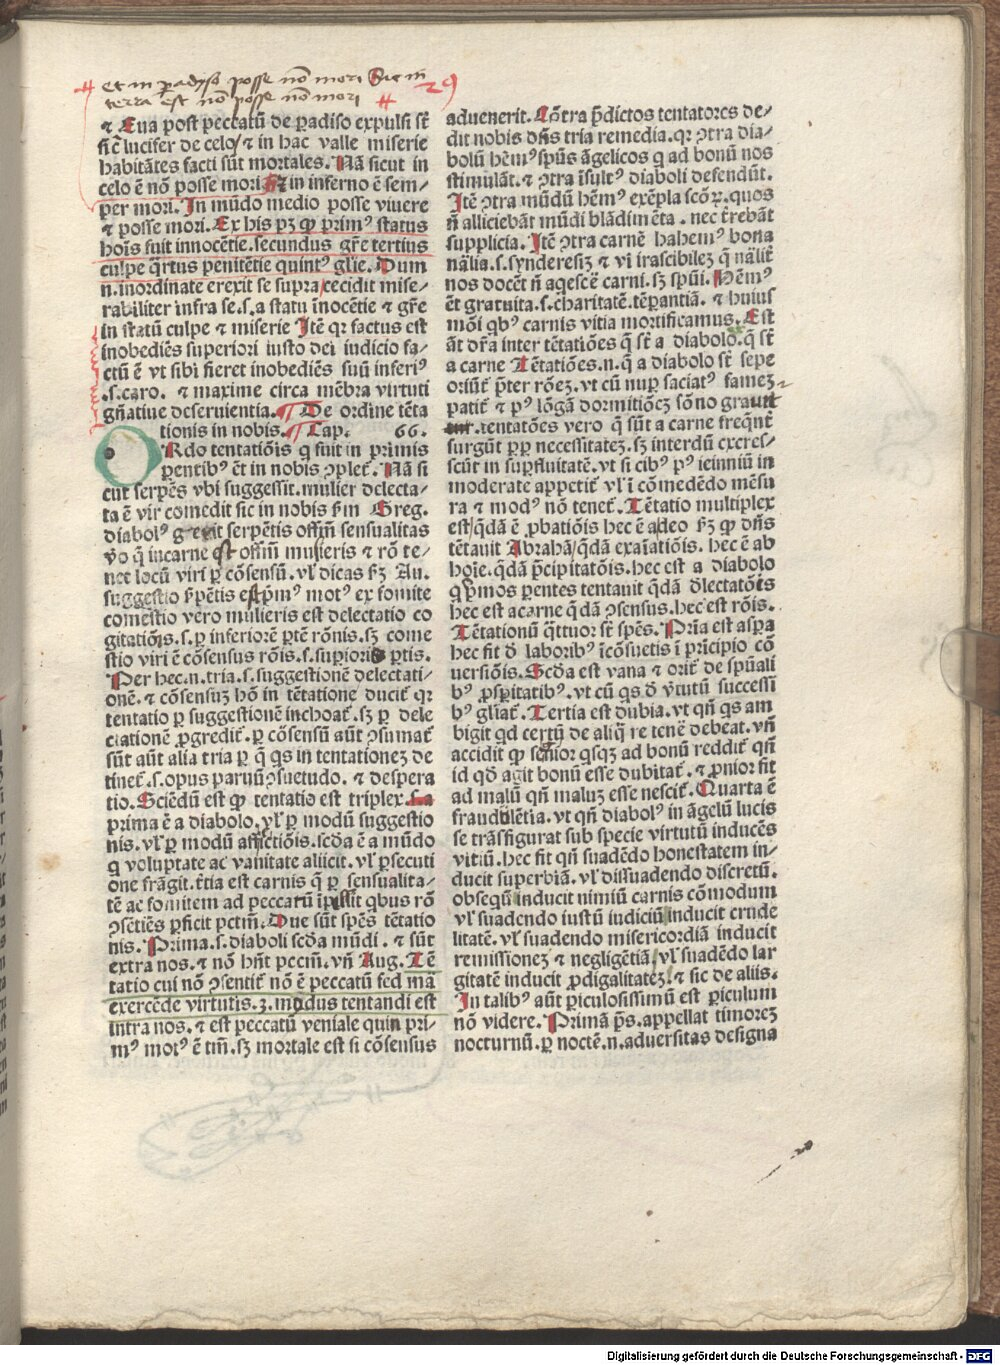 et in padyso posse nō mori Sic in
terra est nō posse nō mori
29
⁊ Eua post peccatū de padiso expulsi sūt
sic̄ lucifer de celo/ ⁊ in hac valle miserie
habitātes facti sūt mortales. Nā sicut in
celo ē nō posse mori in inferno ē sem⸗
per mori. In mūdo medio posse viuere
⁊ posse mori. Ex his pꝫ ꝙ primꝰ status
hoīs fuit innocētie. secundus gr̄e tertius
culpe q̄rtus penitētie quintꝰ glie. Dum
n. inordinate erexit se supra cecidit mise⸗
rabiliter infra se. s. a statu īnocētie ⁊ gr̄e
in statū culpe ⁊ miserie Itē qꝛ factus est
inobediēs superiori iusto dei iudicio fa⸗
ctū ē vt sibi fieret inobediēs suū inferiꝰ
.s. caro. ⁊ maxime circa mēbra virtuti
gn̄atiue deseruientia. De ordine tēta
tionis in nobis. Cap. 66.
ORdo tentatiōis q̄ fuit in primis
parentibꝰ ēt in nobis ꝯplet̄. Nā si
cut serpēs vbi suggessit. mulier delecta⸗
ta ē vir comedit sic in nobis ẜm Greg.
diabolꝰ gerit serpētis offm̄ sensualitas
ṽo q̄ in carne est offm̄ mulieris ⁊ rō te⸗
net locū viri ꝑ cōsensū. vl̓ dicas ẜꝫ Au.
suggestio ẜpētis est pmꝰ motꝰ ex fomite
comestio vero mulieris est delectatio co
gitatiōis. s. ꝑ inferiorē ꝑtē rōnis. sꝫ come
stio viri ē cōsensus rōis. s. supioris ꝑtis.
Per hec. n. tria. s. suggestionē delectati⸗
onē. ⁊ cōsensuꝫ hō in tētatione ducit̄ qꝛ
tentatio ꝑ suggestionē inchoat̄. sꝫ ꝑ dele
ctationē ꝓgredit̄. ꝑ cōsensū aūt ꝯsumat̄
sūt aūt alia tria ꝑ q̄ qs in tentationeꝫ de
tinet̄. s. opus paruū ꝯsuetudo. ⁊ despera
tio. Sciēdū est ꝙ tentatio est triplex.
prima ē a diabolo. vl̓ ꝑ modū suggestio
nis. vl̓ ꝑ modū afflictiōis. scd̄a ē a mūdo
q̄ voluptate ac vanitate allicit. vl̓ ꝑsecuti
one frāgit. t̄tia est carnis q̄ ꝑ sensualita⸗
tē ac fomitem ad peccatū īpellit qbus rō
ꝯsētiēs ꝑficit pctm̄. Due sūt spēs tētatio
nis. Prima. s. diaboli scd̄a mūdi. ⁊ sūt
extra nos. ⁊ nō hn̄t pectm̄. vn̄ Aug. Tē
tatio cui nō ꝯsentit̄ nō ē peccatū sed mā
exercēde virtutis. 3. modus tentandi est
intra nos. ⁊ est peccatū veniale quin pri⸗
mꝰ motꝰ ē tm̄. sꝫ mortale est si cōsensus
aduenerit. Cōtra p̄dictos tentatores de⸗
dit nobis dn̄s tria remedia. qꝛ ꝯtra dia⸗
bolū hēmꝰ spūs āgelicos q̄ ad bonū nos
stimulāt. ⁊ ꝯtra īsultꝰ diaboli defendūt.
Itē ꝯtra mūdū hēmꝰ exēpla scōꝝ. quos
n̄ alliciebāt mūdi blādimēta. nec t̄rebāt
supplicia. Itē ꝯtra carnē habemꝰ bona
nālia. s. synderesiꝫ ⁊ vi irascibileꝫ q̄ nālit̄
nos docēt n̄ aqescē carni. sꝫ spūi. Hēmꝰ
ēt gratuita. s. charitatē. tēꝑantiā. ⁊ huius
mōi qbꝰ carnis vitia mortificamus. Est
āt dr̄a inter tētatiōes q̄ sūt a diabolo. q̄ sūt
a carne Tētatiōes. n. q̄ a diabolo sūt sepe
oriūt̄ p̄ter rōeꝫ. vt cū nuꝑ saciatꝰ fameꝫ
patit̄ ⁊ pꝰ lōgā dormitiōeꝫ sōno graua
tur. tentatōes vero q̄ sūt a carne freqn̄t
surgūt ꝓꝑ necessitateꝫ. sꝫ interdū excres⸗
scūt in suꝑfluitatē. vt si cibꝰ pꝰ ieiuniū in
moderate appetit̄ vl̓ ī comedēdo mēsu
ra ⁊ modꝰ nō tenet̄. Tētatio multiplex
est/ qdā ē ꝓbatiōis hec ē a deo ẜꝫ ꝙ dn̄s
tētauit Abrahā/ qdā exaīatiōis. hec ē ab
hoīe. qdā p̄cipitatōis. hec est a diabolo
q p̄mos ꝑentes tentauit qdā delectatōis
hec est a carne qdā ꝯsensus. hec est rōis.
Tētationū q̄ttuor sūt spēs. Pria est aspa
hec fit d̄ laboribꝰ īcōsuetis ī p̄ricipio cō
uersiōis. Scd̄a est vana ⁊ orit̄ de spūali
bꝰ ꝓspitatibꝰ. vt cū qs d̄ v̓tutū successi
bꝰ gliat̄. Tertia est dubia. vt qn̄ qs am
bigit qd certū de aliq̄ re tenē debeat. vn̄
accidit ꝙ senior qsqꝫ ad bonū reddit̄ qn̄
id qd̄ agit bonū esse dubitat̄. ⁊ ꝓnior fit
ad malū qn̄ maluꝫ esse nescit̄. Quarta ē
fraudulētia. vt qn̄ diabolꝰ in āgelū lucis
se trāsfigurat sub specie virtutū inducēs
vitiū. hec fit qn̄ suadēdo honestatem in⸗
ducit superbiā. vl̓ dissuadendo discretū.
obsequiū inducit nimiū carnis cōmodum
vl̓ suadendo iustū iudiciū inducit crude
litatē. vl̓ suadendo misericordiā inducit
remissioneꝫ ⁊ negligētiā. vl̓ suadēdo lar
gitatē inducit ꝓdigalitateꝫ. ⁊ sic de aliis.
In talibꝰ aūt ꝑiculosissimū est ꝑiculum
nō videre. Primā p̄s. appellat timoreꝫ
nocturnū. ꝑ noctē. n. aduersitas designa
Digitalisierung gefördert durch die Deutsche Forschungsgemeinschaft - DFG